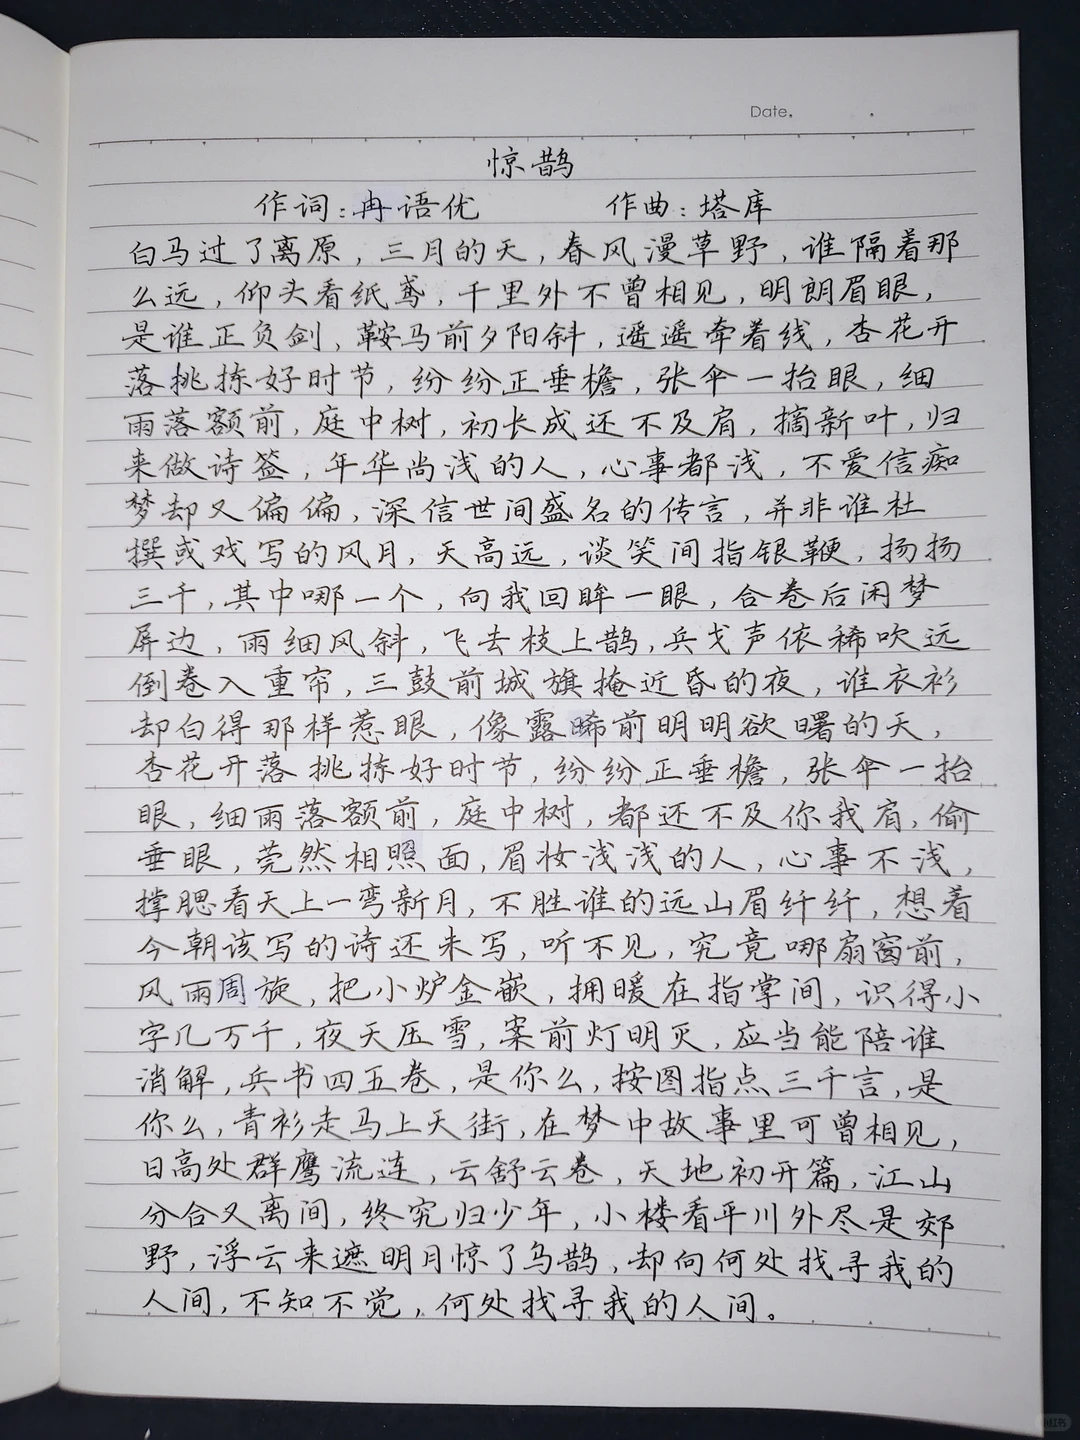 Date.
惊鹊
作词:冉语优 作曲:塔库
白马过了离原,三月的天,春风漫草野,谁隔着那
么远,仰头看纸鸢,千里外不曾相见,明朗眉眼,
是谁正负剑,鞍马前夕阳斜,遥遥牵着线,杏花开
落挑拣好时节,纷纷正垂檐,张伞一抬眼,细
雨落额前,庭中树,初长成还不及肩,摘新叶,归
来做诗签,年华尚浅的人,心事都浅,不爱信痴
梦却又偏偏,深信世间盛名的传言,并非谁杜
撰或戏写的风月,天高远,谈笑间指银鞭,扬扬
三千,其中哪一个,向我回眸一眼,合卷后闲梦
屏边,雨细风斜,飞去枝上鹊,兵戈声依稀吹远
倒卷入重帘,三鼓前城旗掩近昏的夜,谁衣衫
却白得那样惹眼,像露晞前明明欲曙的天,
杏花开落挑拣好时节,纷纷正垂檐,张伞一抬
眼,细雨落额前,庭中树,都还不及你我肩,偷
垂眼,莞然相照面,眉妆浅浅的人,心事不浅,
撑腮看天上一弯新月,不胜谁的远山眉纤纤,想着
今朝该写的诗还未写,听不见,究竟哪扇窗前,
风雨周旋,把小炉金嵌,拥暖在指掌间,识得小
字几万千,夜天压雪,案前灯明灭,应当能陪谁
消解,兵书四五卷,是你么,按图指点三千言,是
你么,青衫走马上天街,在梦中故事里可曾相见,
日高处群鹰流连,云舒云卷,天地初开篇,江山
分合又离间,终究归少年,小楼看平川外尽是郊
野,浮云来遮明月惊了乌鹊,却向何处找寻我的
人间,不知不觉,何处找寻我的人间。